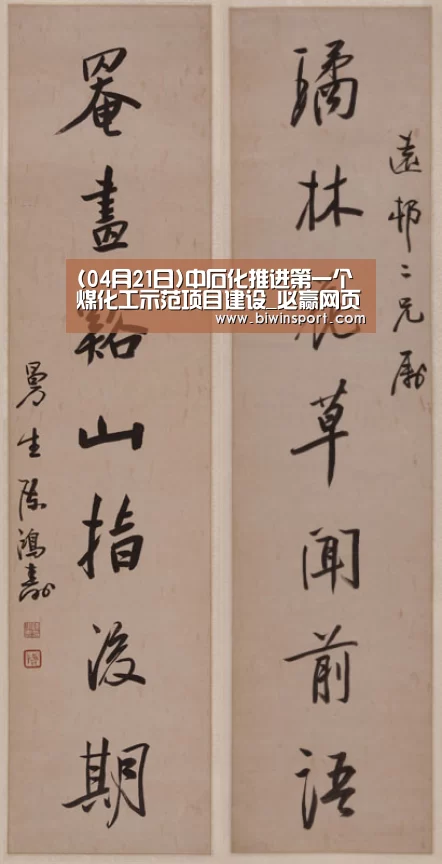 遠邨二兄屬
璚林花草聞前語
罨畫谿山指後期
曼生陳鴻壽
(04月21日)中石化推进第一个
煤化工示范项目建设_必赢网页
www.biwinsport.com